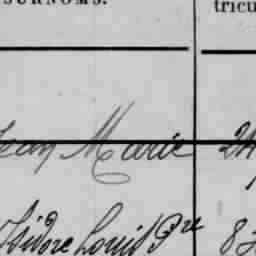 SURNOMS. tricu
Jean Marie 24
Isidore Louis Pre 8